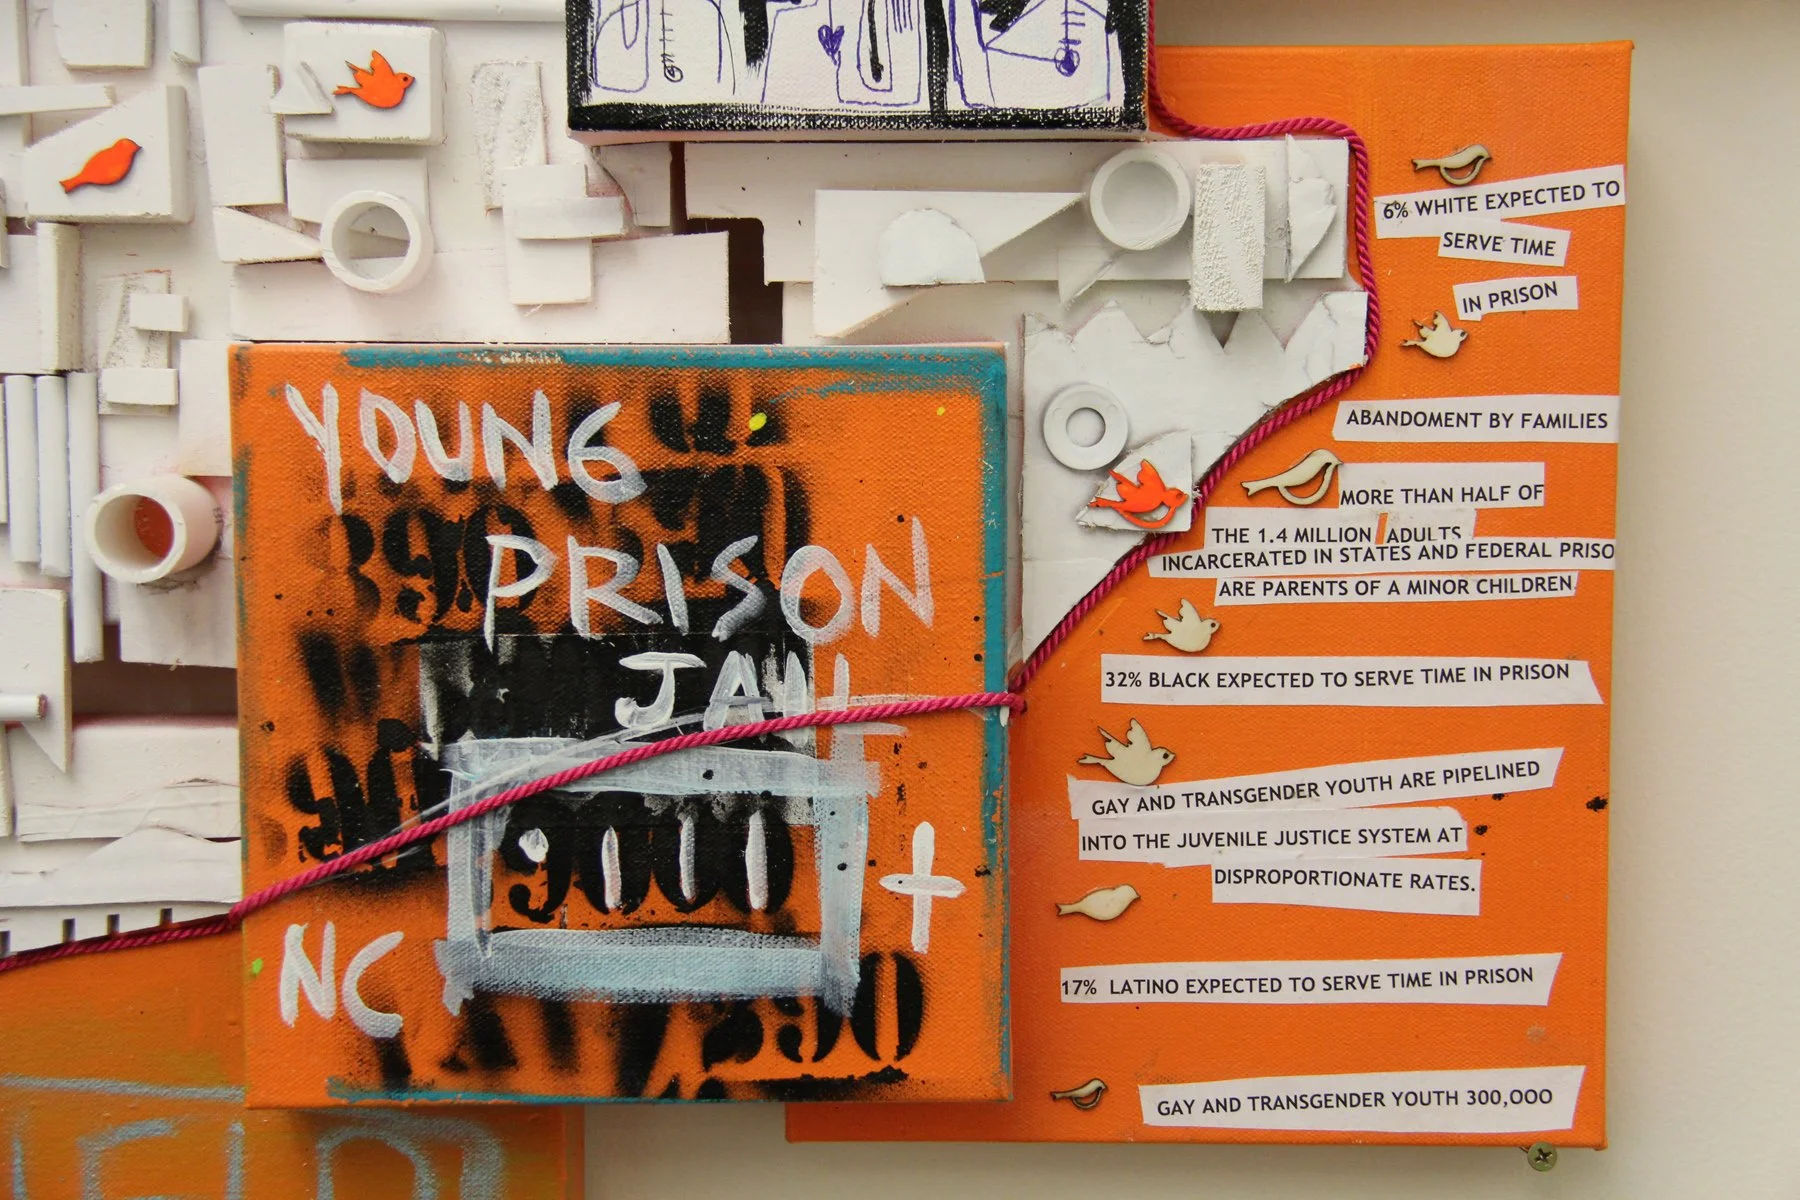 YOUNG
PRISON
JAIL
NC
90
6% WHITE EXPECTED TO
SERVE TIME
IN PRISON
ABANDOMENT BY FAMILIES
MORE THAN HALF OF
THE 1.4 MILLION ADULTS
INCARCERATED IN STATES AND FEDERAL PRISO
ARE PARENTS OF A MINOR CHILDREN
32% BLACK EXPECTED TO SERVE TIME IN PRISON
GAY AND TRANSGENDER YOUTH ARE PIPELINED
INTO THE JUVENILE JUSTICE SYSTEM AT
DISPROPORTIONATE RATES.
17% LATINO EXPECTED TO SERVE TIME IN PRISON
GAY AND TRANSGENDER YOUTH 300,000